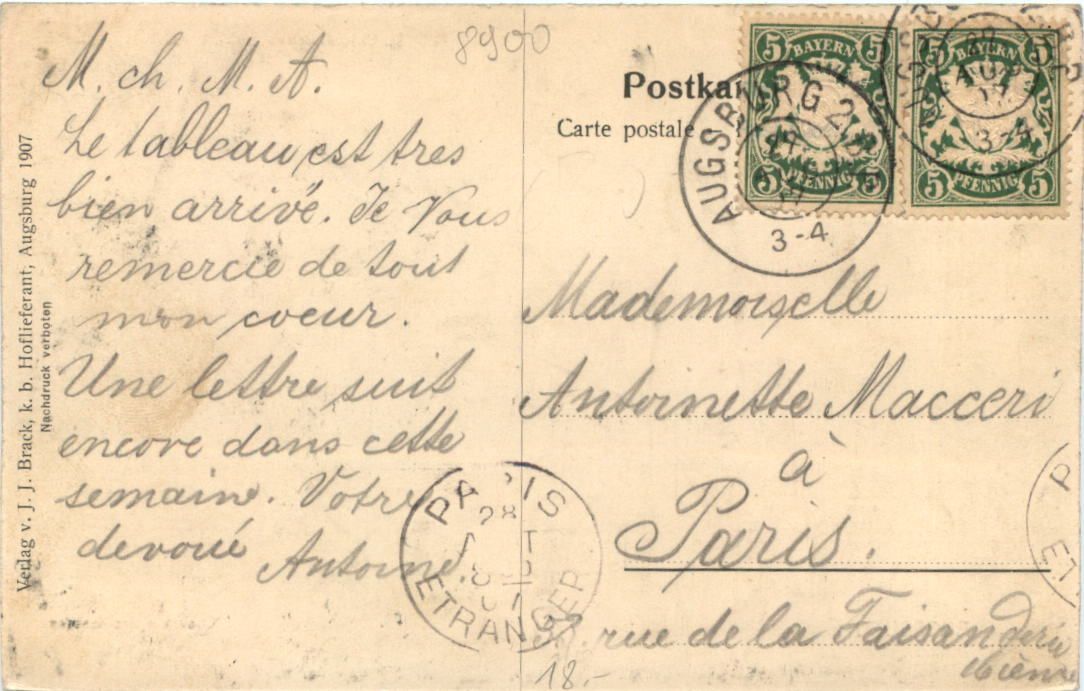 8900
Postka
Carte postale
5 BAYERN 5
5 PFENNIG 5
5 BAYERN 5
5 PFENNIG 5
AUGSBURG 2
3-4
AUG
3-4
M. ch. M. A.
Le tableau est tres
bien arrivé. Je Vous
remercie de tout
mon coeur.
Une lettre suit
encore dans cette
semaine. Votre
devoué
Antoine
Mademoiselle
Antoinette Macceri
à
Paris.
rue de la Faisanderie
16ième
PARIS
28
ETRANGER
P
E
18.-
Verlag v. J. J. Brack, k. b. Hoflieferant, Augsburg 1907
Nachdruck verboten